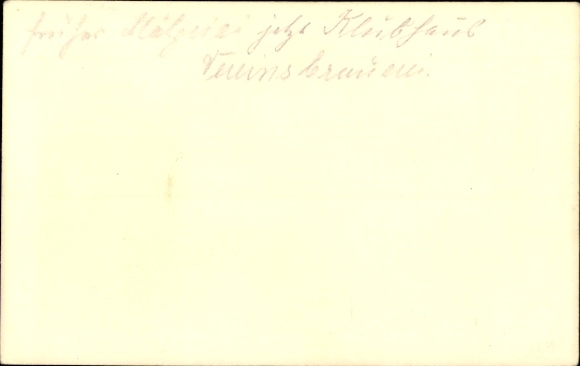 früher Mälzerei jetzt Klubhaus
Vereinsbrauerei.